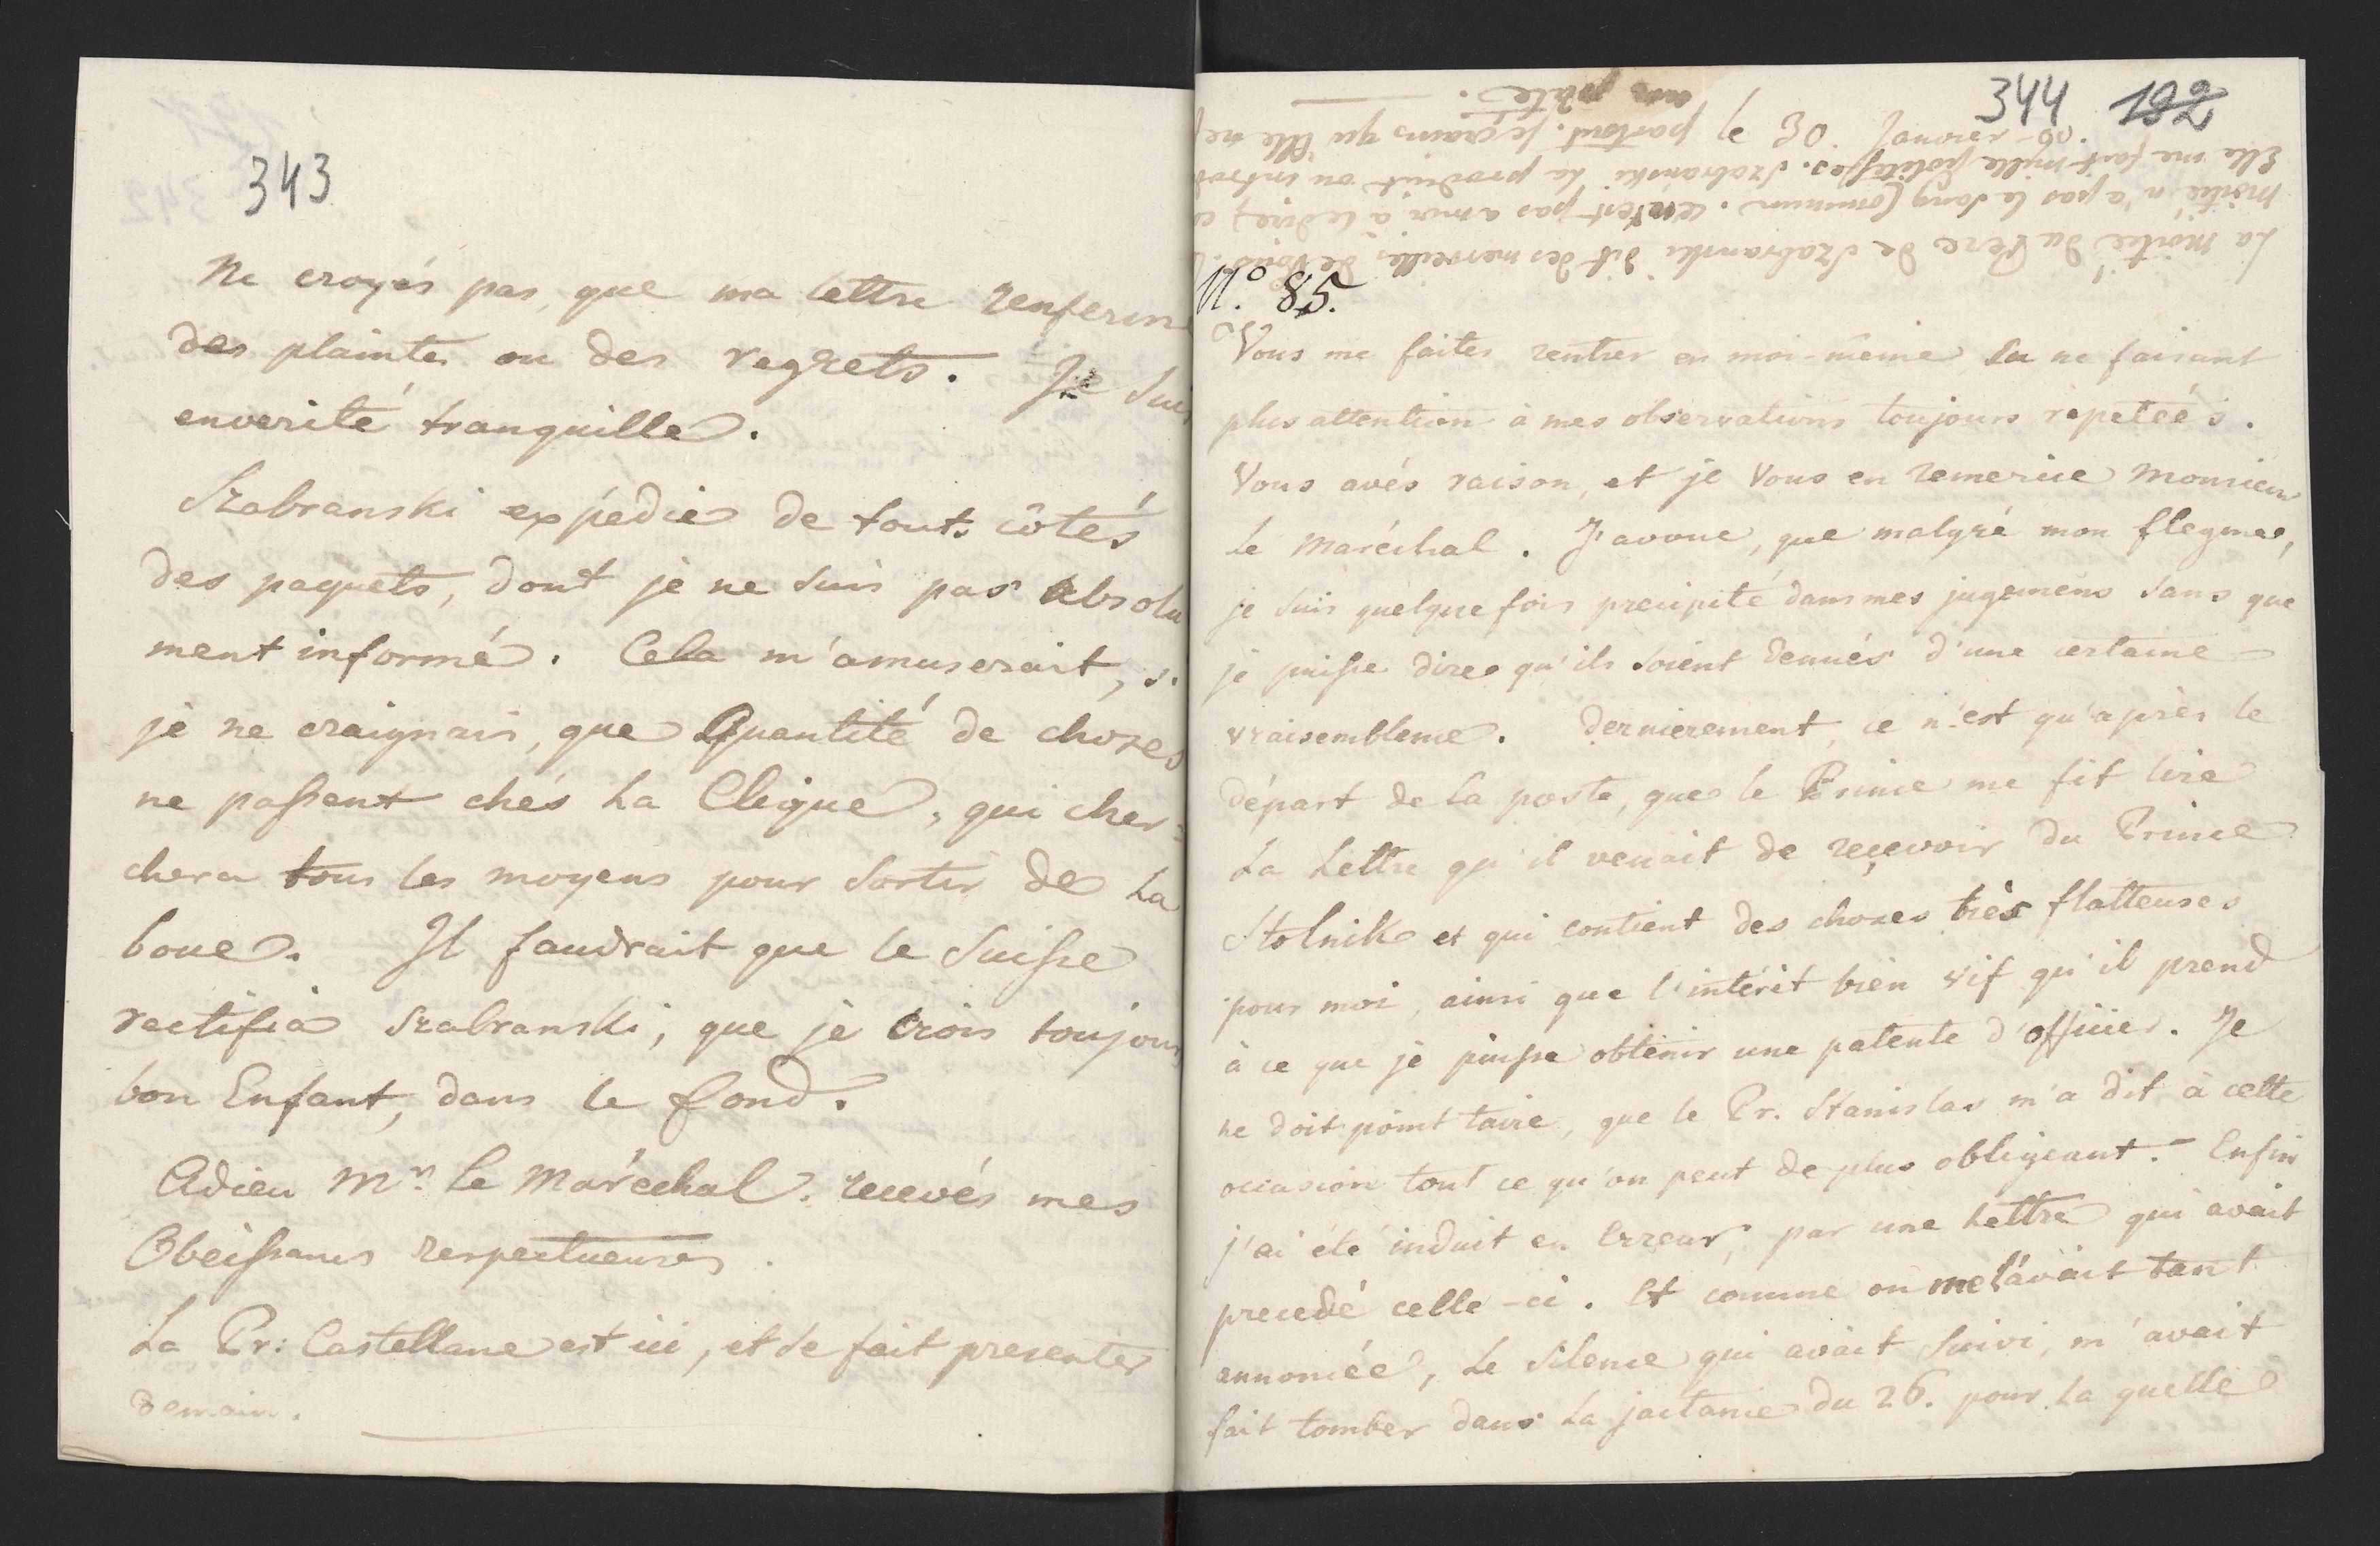 343
Ne croyés pas, que ma lettre renferme
des plaintes ou des regrets. Je suis
enverité tranquille.
Szabranski expédie de touts côtés
des paquets, dont je ne suis pas absolu
ment informé. Cela m'amuserait, si
je ne craignais, que Quantité de choses
ne passent chés La Clique, qui cher=
chera tous les moyens pour sortir de La
boue. Il faudrait que le Suisse
rectifia Szabranski, que je crois toujours
bon Enfant, dans le fond.
Adieu Mr. Le Maréchal. recevés mes
Obeissances respectueuses.
La Pr: Castellane est ici, et se fait presenter
demain.
344 182
No. 85.
le 30. Janvier -90.
Vous me faites rentrer en moi-même en ne faisant
plus attention à mes observations toujours repeteés.
Vous avés raison, et je Vous en remercie Monsieur
Le Maréchal. J'avoue, que malgré mon flegme,
je suis quelque fois precipité dans mes jugemens sans que
je puisse dire qu'ils soient denués d'une certaine
vraisemblence. Dernierement, ce n'est qu'après le
départ de la poste, que le Prince me fit lire
La Lettre qu'il venait de reçevoir du Prince
Stolnik et qui contient des choses très flatteuses
pour moi, ainsi que l'intérêt bien vif qu'il prend
à ce que je puisse obtenir une patente d'officier. Je
ne doit point taire, que le Pr. Stanislas m'a dit à cette
occasion tout ce qu'on peut de plus obligeant. Enfin
j'ai été induit en Erreur, par une Lettre qui avait
precedé celle-ci. Et comme on me l'avait tant
annoncée, Le Silence qui avait suivi, m'avait
fait tomber dans La jactance du 26. pour La quelle
La moitié du Pere de Szabranski dit des merveilles de Vous.
moitié n'a pas le sang Commun. Ce n'est pas a moi à le dire,
Elle me fait mille politesses. Szabranski La produit
partout. Je crains qu'Elle ne